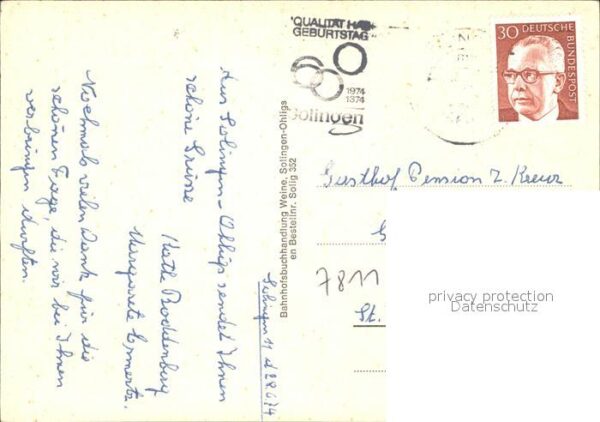 Aus Solingen-Ohligs sendet Ihnen
schöne Grüsse
Käthe Boddenberg
Margarete
Nochmals vielen Dank für die
schönen Tage, die wir bei Ihnen
verbringen durften.
Solingen 11 d 28 6 74
Bahnhofsbuchhandlung Weine, Solingen-Ohligs
en Bestellnr. Solig 352
"QUALITÄT HAT
GEBURTSTAG"
600
1974
1374
Solingen
30 DEUTSCHE
BUNDESPOST
Gasthof Pension z. Kreuz
7811
St.
privacy protection
Datenschutz